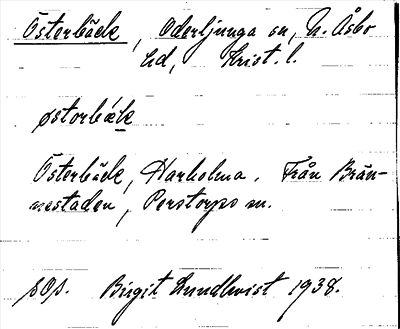 Österbäck, Oderljunga sn, N. Åsbo
hd, Krist. l.
østorbæk
Österbäck, Harholma. Från Brän-
nestaden, Perstorps sn.
sOp. Birgit Lundkvist 1938.